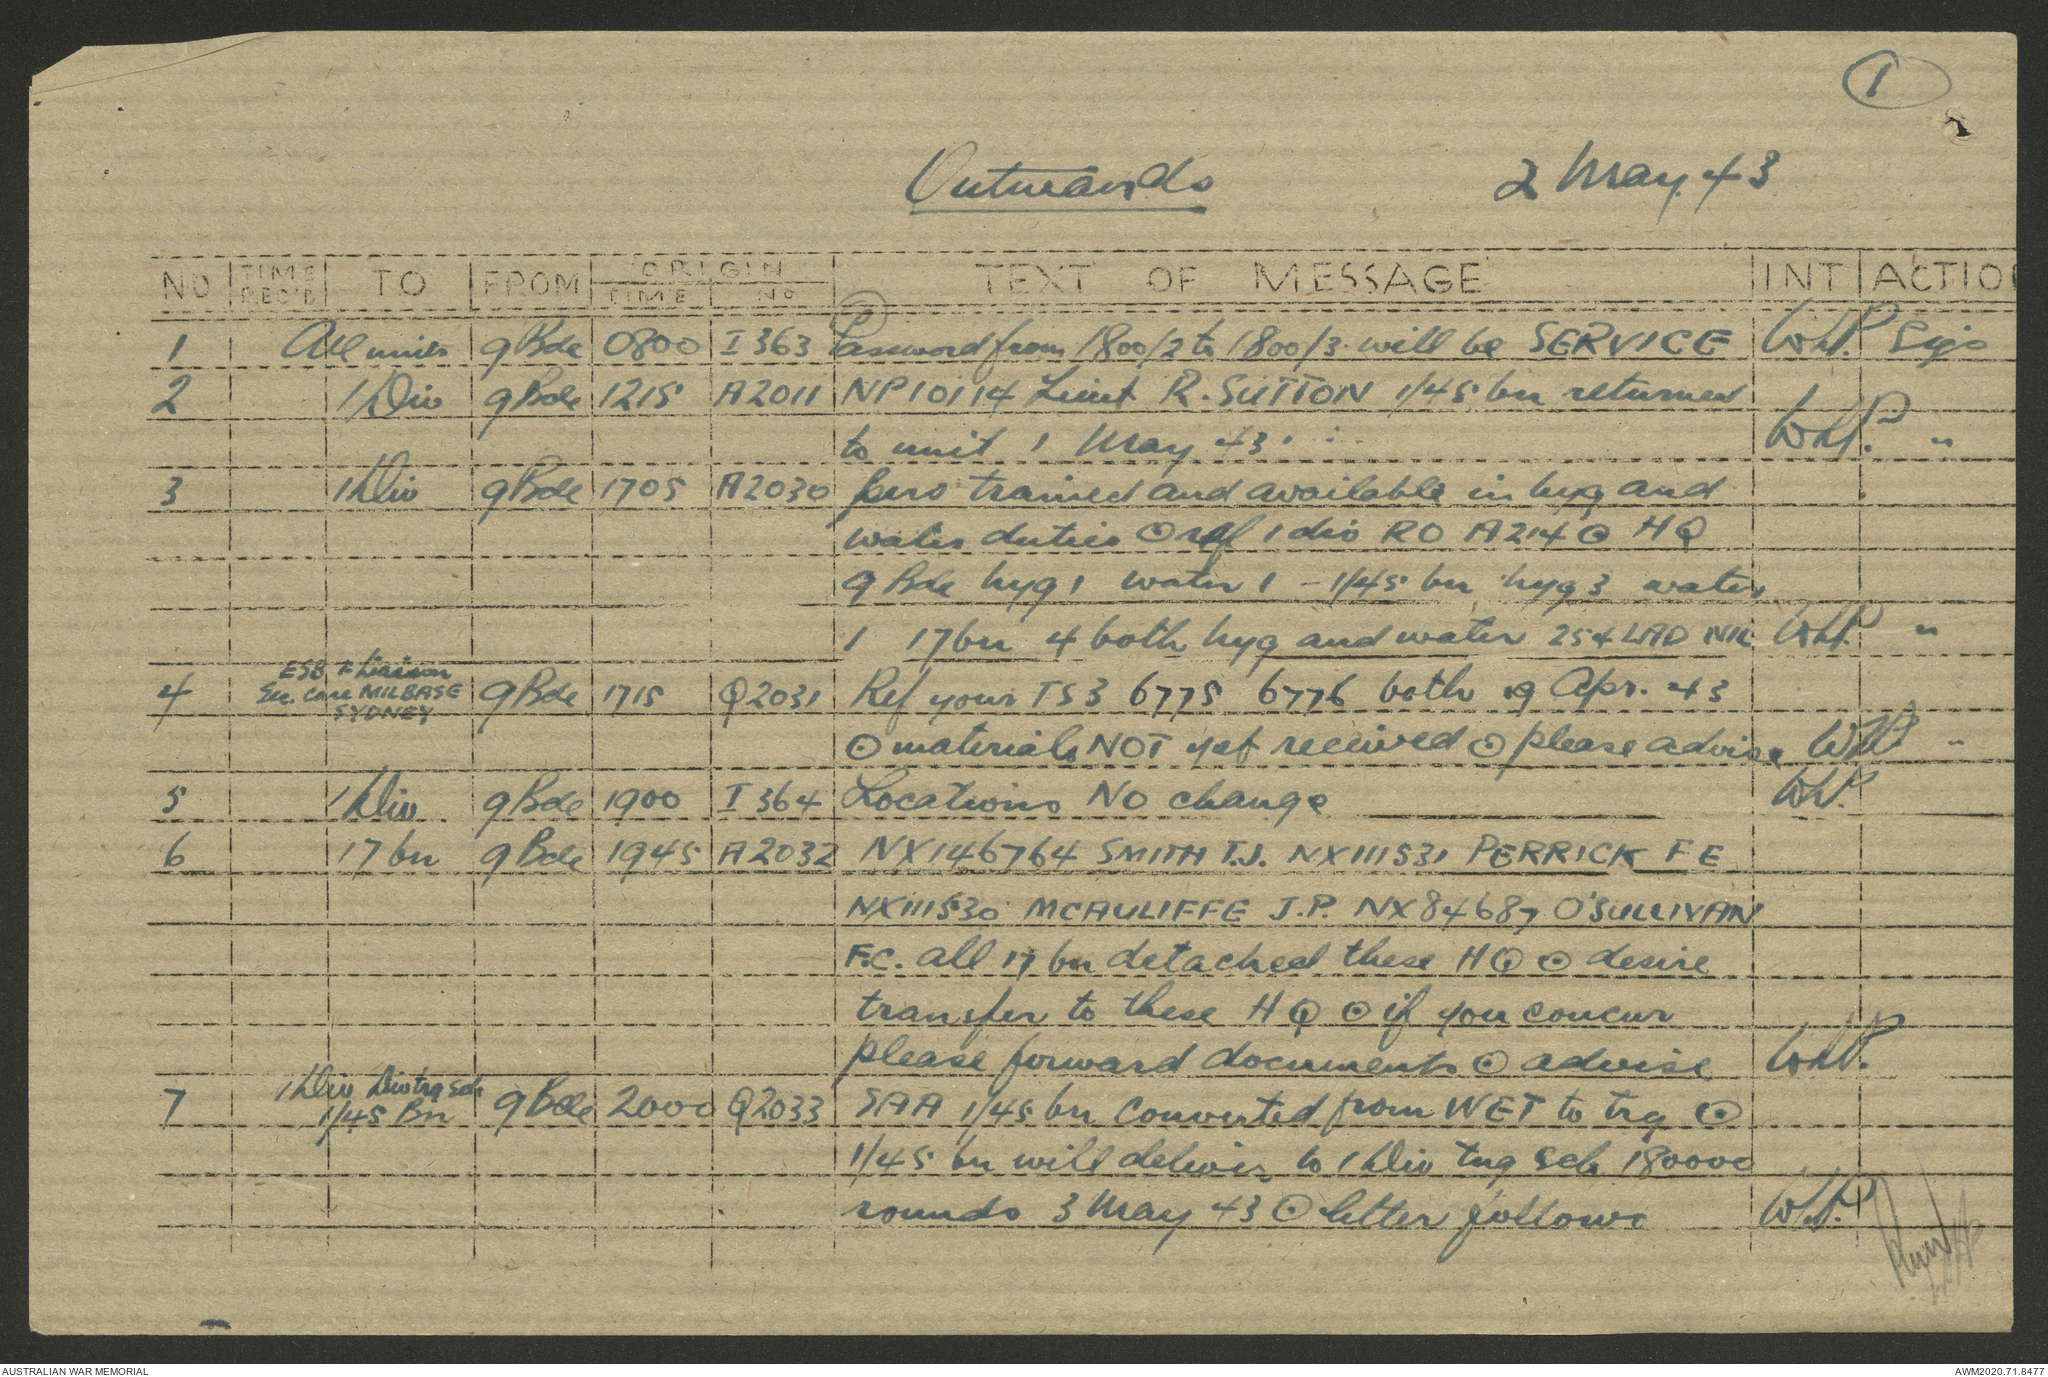 1
Outwards 2 May. 43
NO TIME REC'D TO FROM ORIGIN TIME NO TEXT OF MESSAGE INT ACTIO
1 All units 9 Bde 0800 I 363 Password from 1800/2 to 1800/3 will be SERVICE WLP. Sigs
2 1 Div 9 Bde 1215 A2011 NP10114 Lieut R. SUTTON 1/45 bn returned
to unit 1 May 43. WLP. "
3 1 Div 9 Bde 1705 A2030 pers trained and available in hyg and
water duties ⊙ ref 1 div RO A214 ⊙ HQ
9 Bde hyg 1 water 1 - 1/45 bn hyg 3 water
1 17 bn 4 both hyg and water 254 LAD NIL WLP. "
4 ESB & Liaison Sec. Care MILBASE SYDNEY 9 Bde 1715 Q2031 Ref your TS3 6775 6776 both 19 Apr. 43
⊙ materials NOT yet received ⊙ please advise WLP "
5 1 Div 9 Bde 1900 I 364 Locations No change WLP.
6 17 bn 9 Bde 1945 A2032 NX146764 SMITH T.J. NX111531 PERRICK F E
NX111530 MCAULIFFE J.P. NX84687 O'SULLIVAN
F.C. all 17 bn detached these HQ ⊙ desire
transfer to these HQ ⊙ if you concur
please forward documents ⊙ advise WLP.
7 1 Div Div trg Sch 1/45 Bn 9 Bde 2000 Q2033 SAA 1/45 bn converted from WET to trg ⊙
1/45 bn will deliver to 1 Div trg Sch 180000
rounds 3 May 43 ⊙ letter follows WLP.
AUSTRALIAN WAR MEMORIAL AWM2020.71.8477